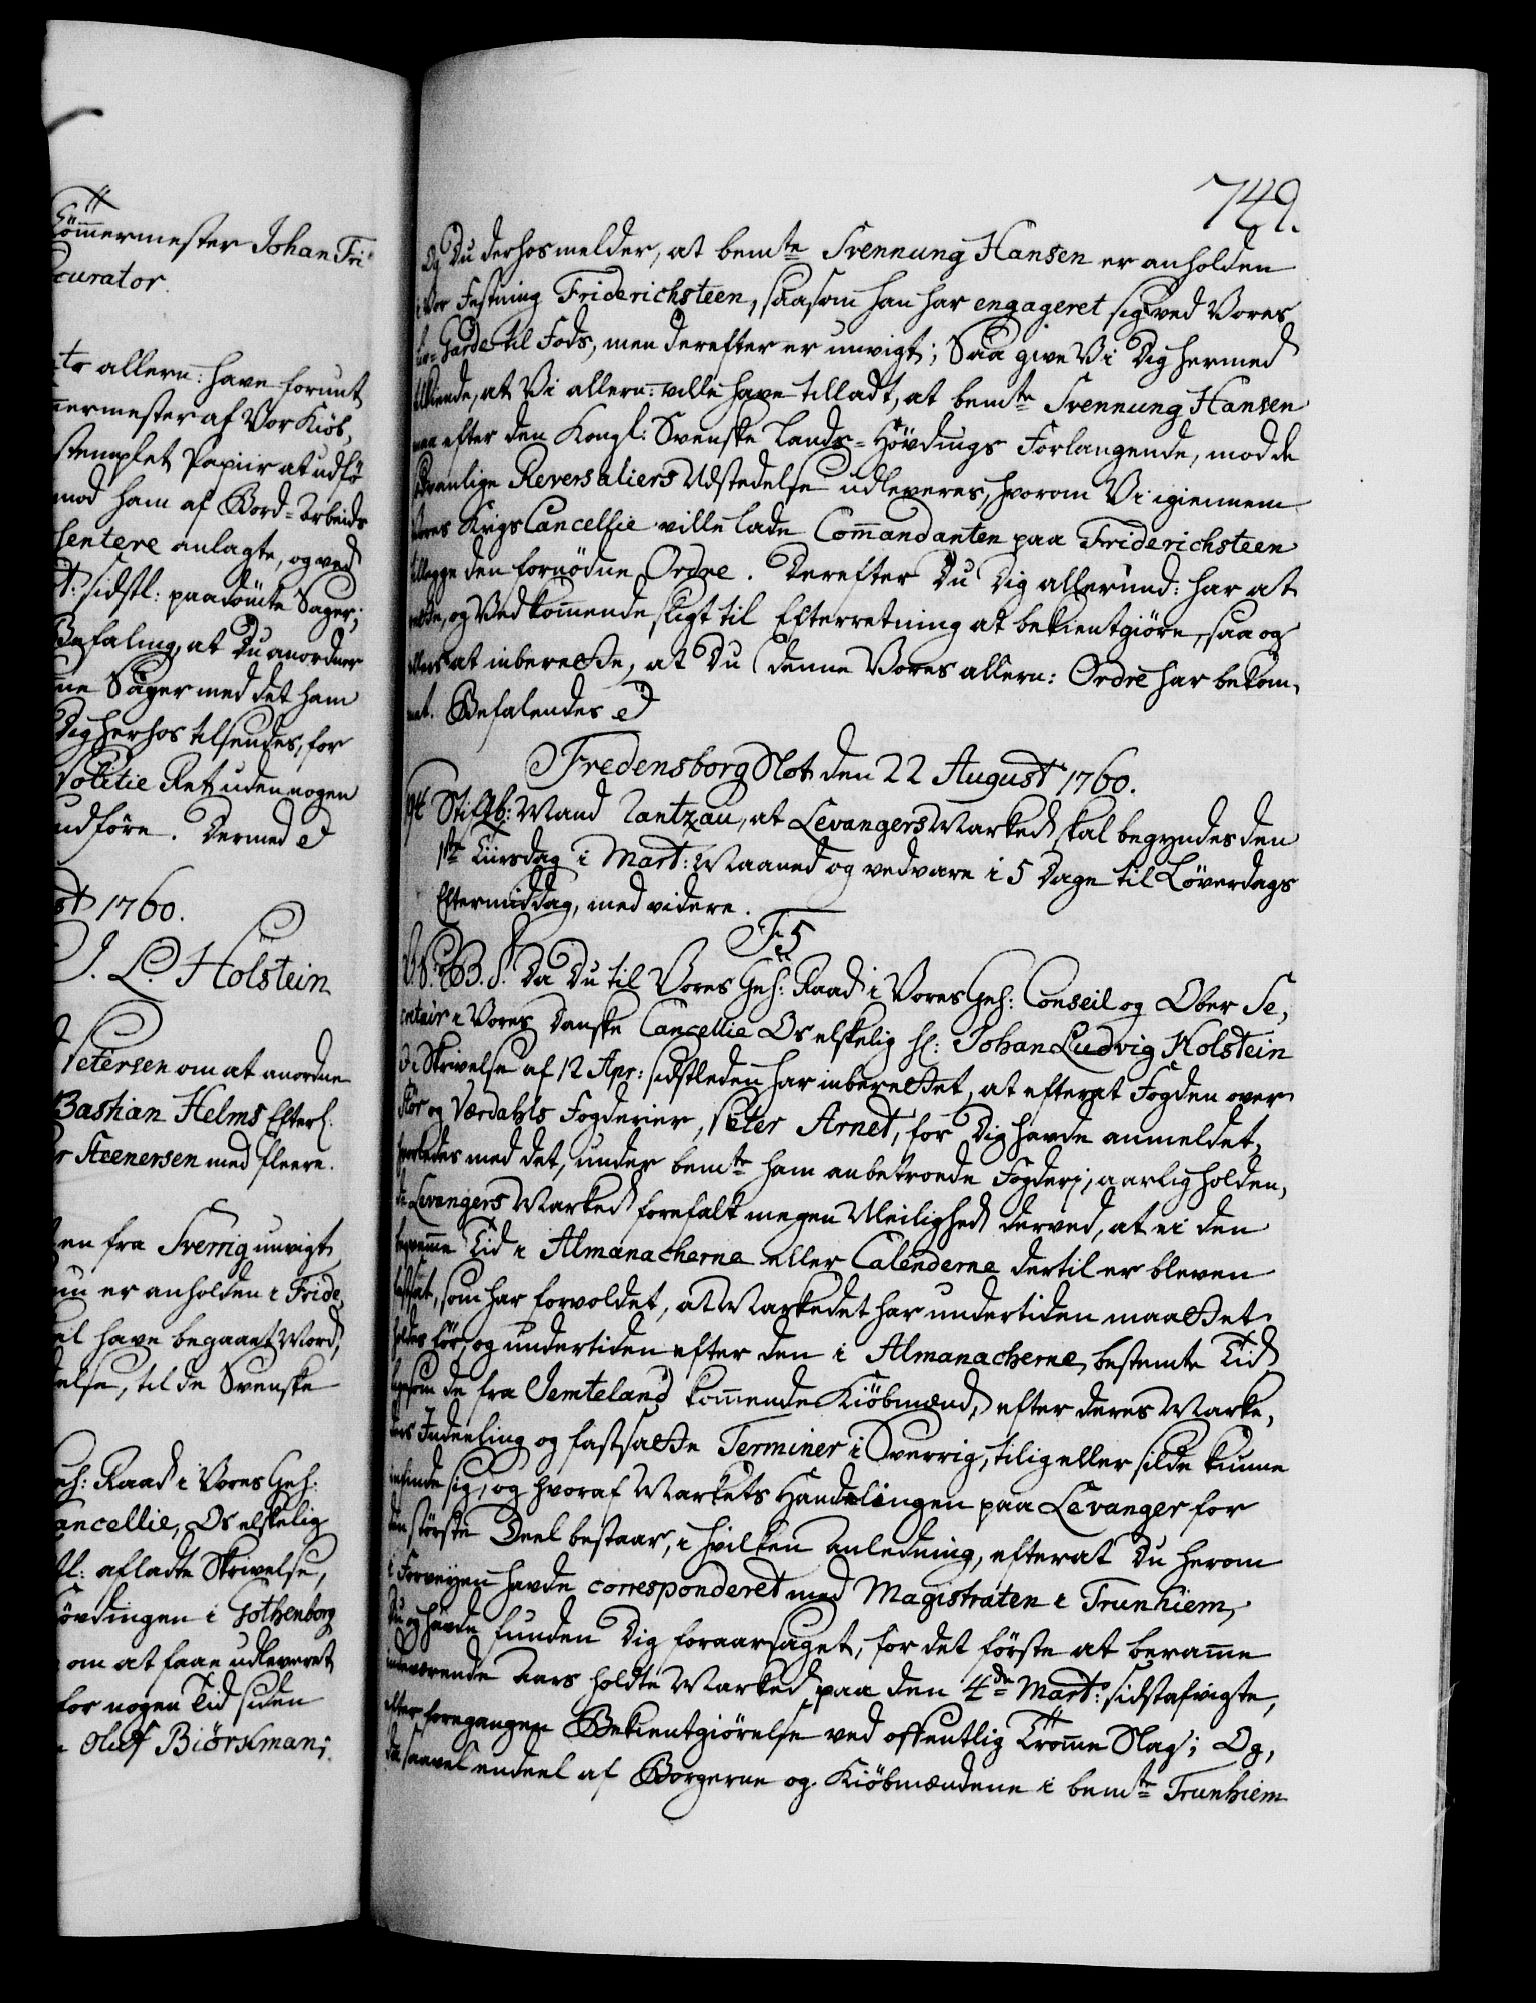 Tömmermester Johan Fri=
curator.
allern: have forunt
mermester af Vor Kiöb,
stemplet Papiir at udfö
mod ham af Bord-Arbeids
sentere anlagte, og ved
sidstl: paadömte Sager;
Befaling, at Du anordner
ne Sager med det ham
Dig herhos tilsendes, for
Politie Ret uden nogen
udföre. Dermed
1760.
J. L. Holstein
Petersen om at anordne
Bastian Helms Efterl.
Steenersen med fleere.
en fra Sverrig unvigt
nu er anholden i Fride
have begaaet Mord,
else, til de Svenske
Geh: Raad i Vores Geh:
Cancellie, Os elskelig
afladte Skrivelse,
hövdingen i Gothenborg
om at faae udleveret
for nogen Tid siden
Oluf Biörsmans
749.
Og Du derhos melder, at bemte Svennung Hansen er anholden
i Vor Festning Friderichsteen, saasom han har engageret sig ved Vores
Liv-Garde til Fods, men derefter er unvigt; Saa give Vi Dig hermed
tilkiende, at Vi allern: ville have tilladt, at bemte Svennung Hansen
maa efter den Kongl: Svenske Lands-Hövdings Forlangende, mod de
sædvanlige Reversaliers Udstedelse udleveres, hvorom Vi igiennem
Vores Krigs Cancellie ville lade Commandanten paa Friderichsteen
tillegge den fornödne Ordre. Derefter Du Dig allerund: har at
rette, og Vedkommende sligt til Efterretning at bekientgiöre, saa og
ellers at inberette, at Du denne Vores allern: Ordre har bekom,
met. Befalendes
Fredensborg Slot den 22 August 1760.
Stiftb: Mand Rantzau, at Levangers Marked skal begyndes den
1ste Tiirsdag i Mart: Maaned og vedvare i 5 Dage til Löverdags
Eftermiddag, med videre.
F5
Da Du til Vores Geh: Raad i Vores Geh: Conseil og Ober Se,
cretair i Vores Danske Cancellie Os elskelig Hr: Johan Ludvig Holstein
Skrivelse af 12 Apr: sidstleden har inberettet, at efterat Fogden over
Stör og Værdahls Fogderier, Peter Arnet, for Dig havde anmeldet,
hvorledes med det, under bemte ham anbetroede Fogderj, aarlig holden,
de Levangers Marked forefalt megen Uleilighed derved, at ei den
beqvemme Tid i Almanacherne eller Calenderne dertil er bleven
fastsat, som har forvoldet, at Markedet har undertiden maattet
holdes för, og undertiden efter den i Almanacherne bestemte Tid
ligesom de fra Jemteland kommende Kiöbmænd, efter deres Marke,
ders Indeeling og fastsatte Terminer i Sverrig, tilig eller silde kunne
infinde sig, og hvoraf Markets Handelingen paa Levanger for
den störste Deel bestaar, i hvilken Anledning, efterat Du herom
i Forveyen havde corresponderet med Magistraten i Trunhiem,
Du og havde funden Dig foraarsaget, for det förste at beramme
indeværende Aars holdte Marked paa den 4de Mart: sidstafvigte,
efter foregangen Bekientgiörelse ved offentlig Tromme Slag; Og,
da saavel endeel af Borgerne og Kiöbmændene i bemte Trunhiem